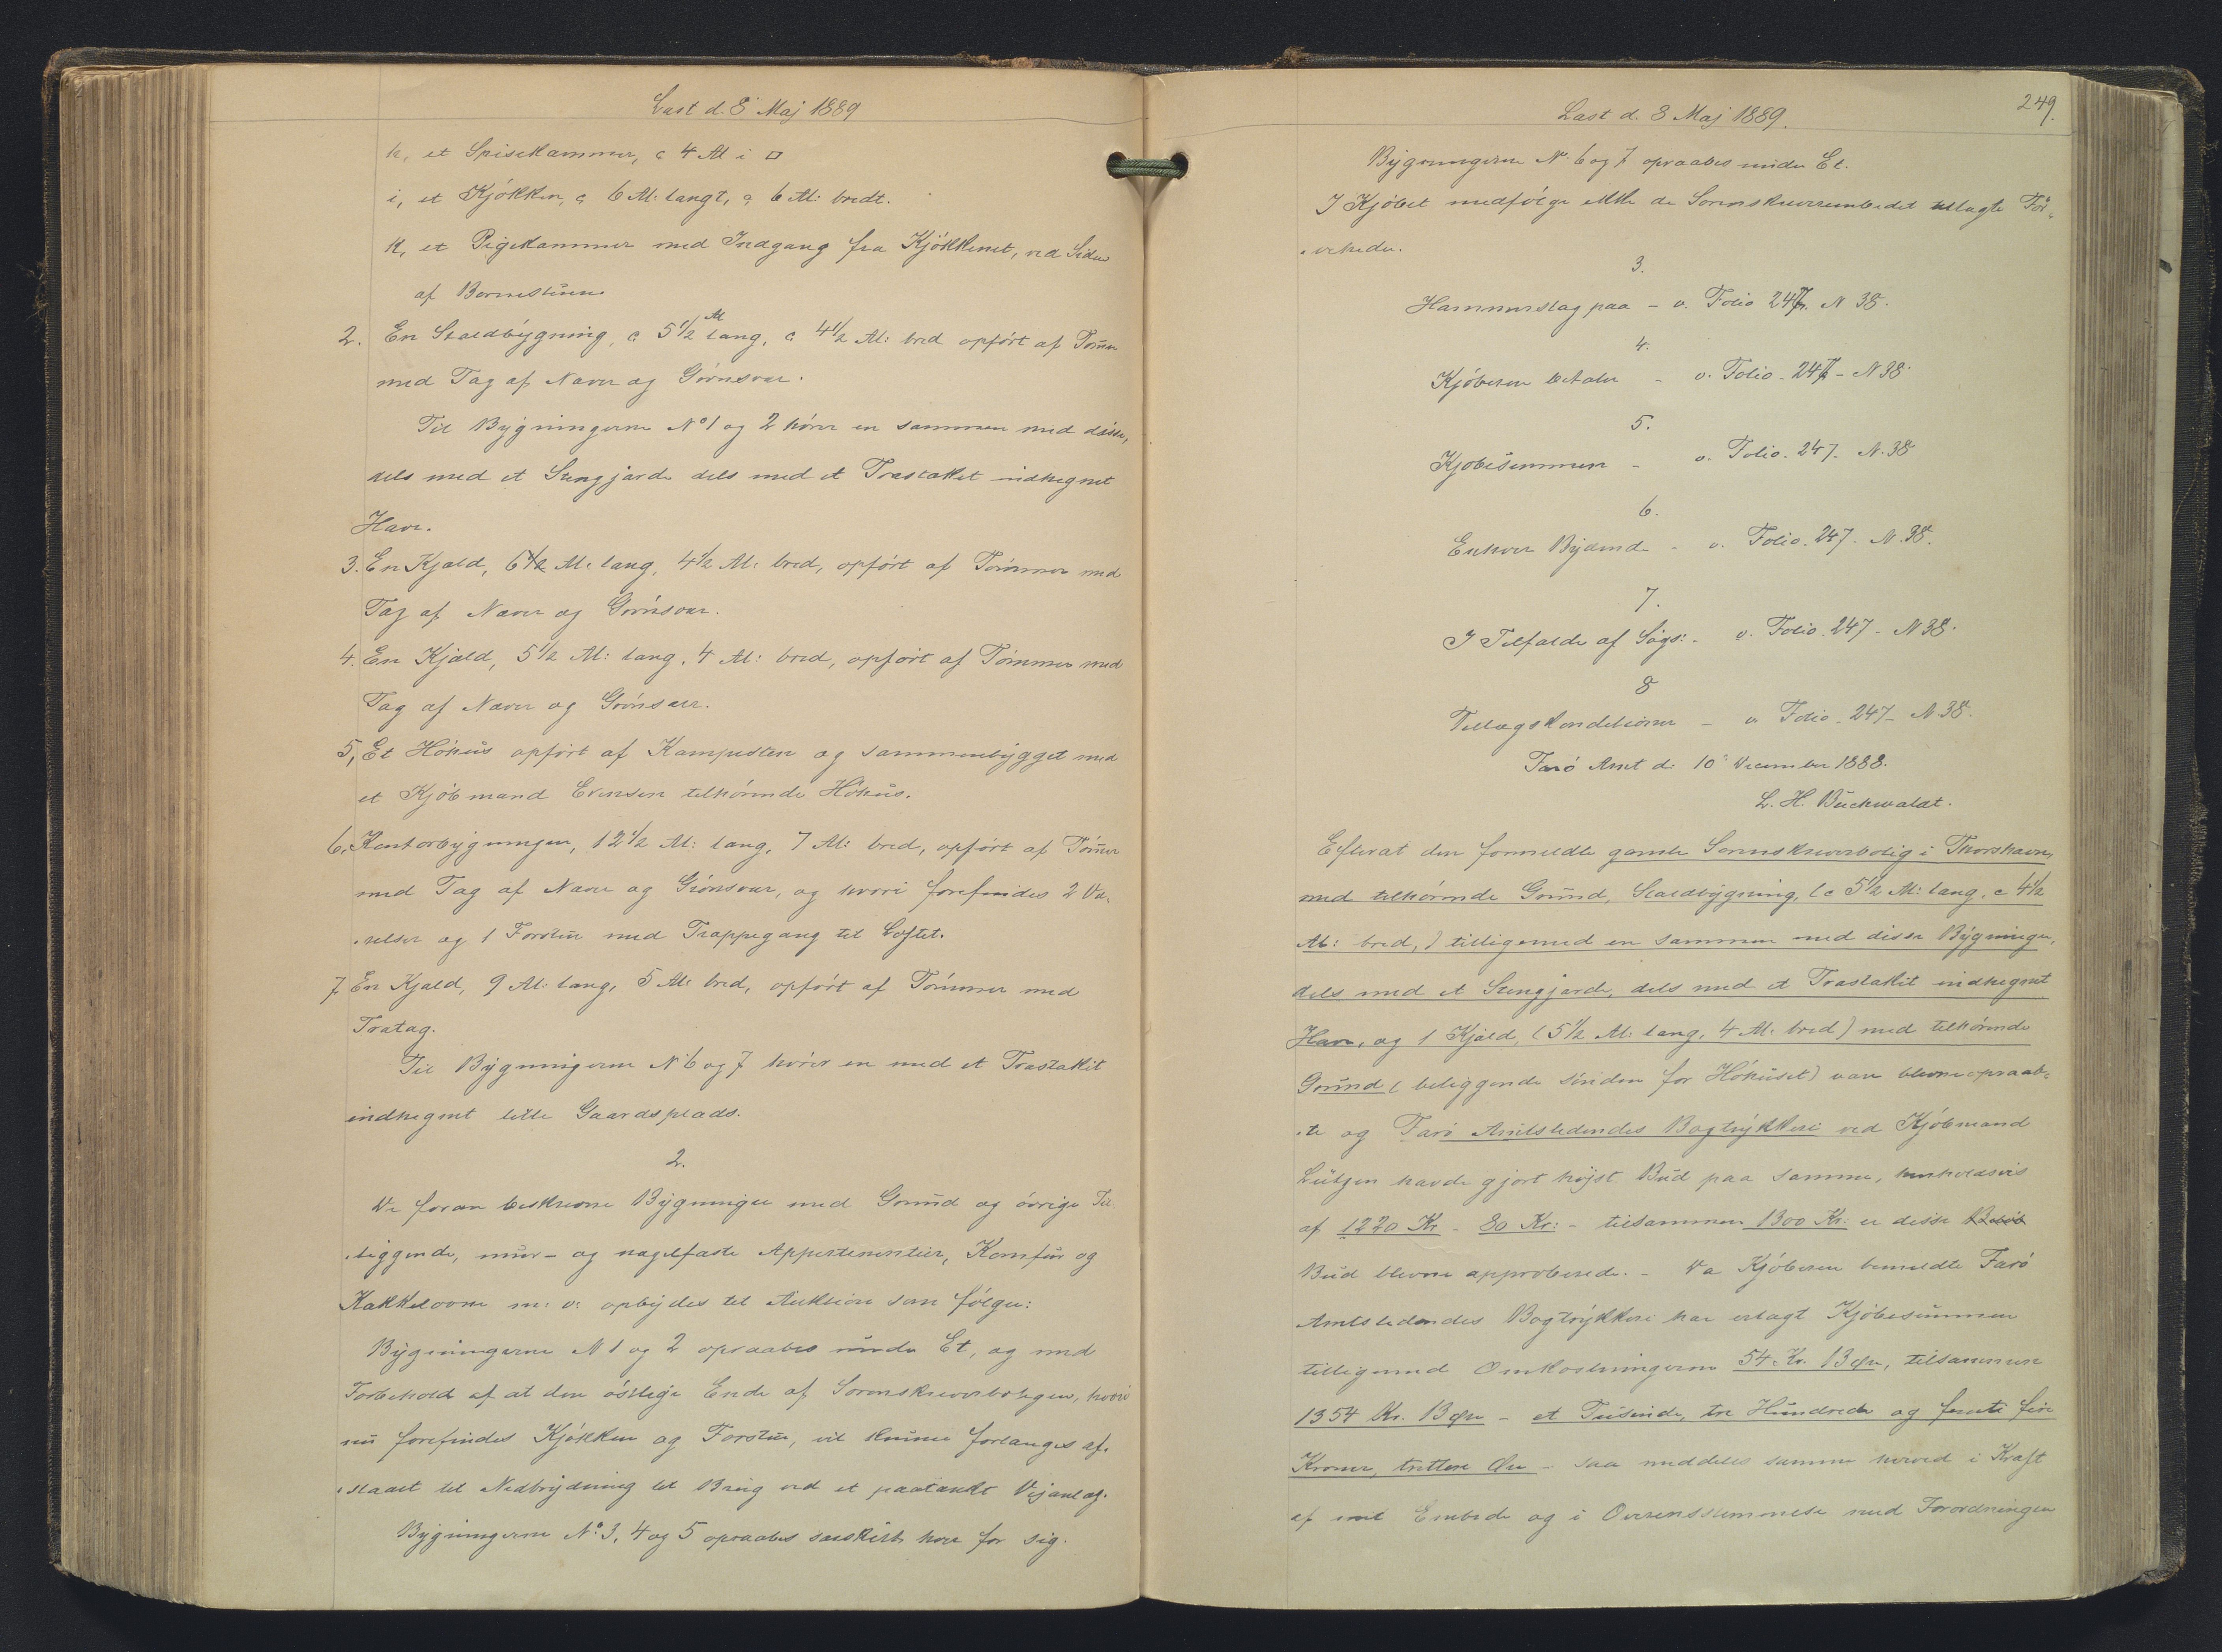 Læst d. 8 Maj 1889
h, et Spisekammer, c 4 Al i □
i, et Kjøkken, c 6 Al: langt, c 6 Al: bredt.
k, et Pigekammer med Indgang fra Kjøkkenet, ved Siden
af Borgestuen
2. En Staldbygning, c 5 1/2 Al lang, c 4 1/2 Al: bred opført af Tømmer
med Tag af Næver og Grønsvær.
Til Bygningerne No 1 og 2 hører en sammen med disse,
dels med et Stengjærde dels med et Træstakit indhegnet
Have.
3. En Kjald, 6 1/2 Al: lang, 4 1/2 Al: bred, opført af Tømmer med
Tag af Næver og Grønsvær.
4. En Kjald, 5 1/2 Al: lang, 4 Al: bred, opført af Tømmer med
Tag af Næver og Grønsvær.
5, Et Høhus opført af Kampesten og sammenbygget med
et Kjøbmand Evensen tilhørende Høhus.
6. Kontorbygningen, 12 1/2 Al: lang, 7 Al: bred, opført af Tømmer
med Tag af Næver og Grønsvær, og hvori forefindes 2 Væ-
relser og 1 Forstue med Trappegang til Loftet.
7. En Kjald, 9 Al: lang, 5 Al: bred, opført af Tømmer med
Trætag.
Til Bygningerne No 6 og 7 hører en med et Træstakit
indhegnet lille Gaardsplads.
2.
De foran beskrevne Bygninger med Grund og øvrige Til-
liggende, mur- og nagelfaste Appertinentier, Komfur og
Kakkelovne m: v: opbydes til Auktion som følger:
Bygningerne N 1 og 2 opraabes under Et, og med
Forbehold af at den østlige Ende af Sorenskriverboligen, hvori
nu forefindes Kjøkken og Forstue, vil kunne forlanges af-
staaet til Nedbrydning til Brug ved et paatænkt Vejanlæg.
Bygningerne No 3, 4 og 5 opraabes særskilt hver for sig.
249.
Læst d. 8 Maj 1889.
Bygningerne No 6 og 7 opraabes under Et.
I Kjøbet medfølge ikke de Sorenskriverembedet tillagte Tør-
veheder.
3.
Hammerslag paa - v. Folio 247. N 38.
4.
Kjøberen betaler - v. Folio - 247 - N 38.
5.
Kjøbesummen - v. Folio. 247. N. 38
6.
Enhver Bydende - v. Folio. 247. N. 38.
7.
I Tilfælde af Søgs: - v. Folio. 247 - N 38.
8
Tillægskonditioner - v. Folio. 247 - N 38.
Færø Amt d: 10 December 1888.
L. H. Buchwaldt.
Efterat den formeldte gamle Sorenskriverbolig i Thorshavn,
med tilhørende Grund, Staldbygning, (c 5 1/2 Al: lang, c 4 1/2
Al: bred,) tilligemed en sammen med disse Bygninger,
dels med et Stengjærde, dels med et Træstakit indhegnet
Have, og 1 Kjald, (5 1/2 Al: lang, 4 Al: bred) med tilhørende
Grund (beliggende sønden for Høhuset) vare blevne opraab-
te og Færø Amtstidendes Bogtrykkeri ved Kjøbmand
Lützen havde gjort højst Bud paa samme, henholdsvis
af 1220 Kr - 80 Kr: - tilsammen 1300 Kr: er disse
Bud blevne approberede. - Da Kjøberen bemeldte Færø
Amtstidendes Bogtrykkeri har erlagt Kjøbesummen
tilligemed Omkostningerne 54 Kr. 13 Øre, tilsammen
1354 Kr. 13 Øre - et Tusinde, tre Hundrede og femti fire
Kroner, tretten Øre - saa meddeles samme herved i Kraft
af mit Embede og i Overensstemmelse med Forordningen